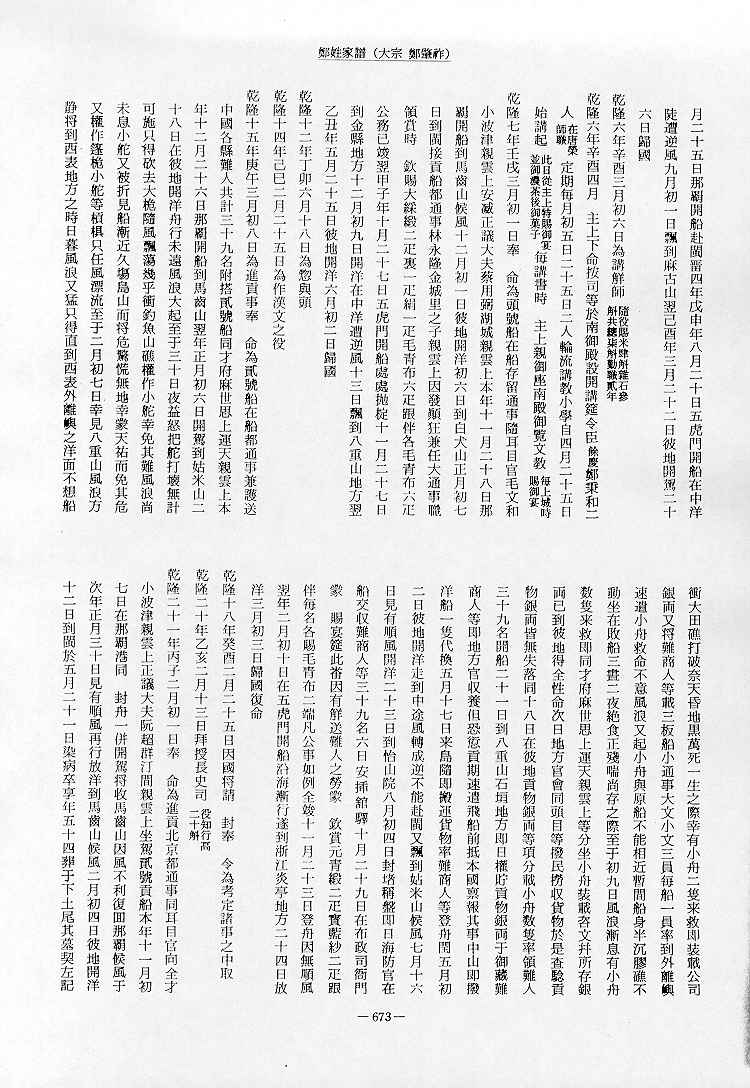 鄭姓家譜（大宗　鄭肇祚）
月二十五日那覇開船赴閩罾四年戊申年八月二十日五虎門開船在中洋
陡遭逆風九月初一日飄到麻古山翌己酉年三月二十二日彼地開駕二十
六日歸國
乾隆六年辛酉三月初六日為講解師 隨役賜米肆斛雜石參斛共總柒斛勤職貳年
乾隆六年辛酉四月　主上下命按司等於南御殿設開講筵令臣 餘慶 鄭秉和二
人 在唐榮師職 定期每月初五日二十五日二人輪流講教小學自四月二十五日
始講起 此日從主上特賜御宴並御濃茶後御菓子 每講書時　主上親御座南殿御覽文教 每上城時賜御宴
乾隆七年壬戌三月初一日奉　命為頭號船在船存留通事隨耳目官毛文和
小波津親雲上安滅正議大夫蔡用弼湖城親雲上本年十一月二十八日那
覇開船到馬齒山候風十二月初一日彼地開洋初六日到白犬山正月初七
日到閩接貢船都通事林永隆金城里之子親雲上因發顛狂兼任大通事職
領賞時　欽賜大綵緞二疋裏一疋絹一疋毛青布六疋跟伴各毛青布六疋
公務已竣翌甲子年十月二十七日五虎門開船處處抛椗十一月二十七日
到金縣地方十二月初九日開洋在中洋遭逆風十三日飄到八重山地方翌
乙丑年五月二十五日彼地開洋六月初二日歸國
乾隆十二年丁卯六月十八日為惣與頭
乾隆十四年己巳二月二十五日為作漢文之役
乾隆十五年庚午三月初八日為進貢事奉　命為貳號船在船都通事兼護送
中國各縣難人共計三十九名附搭貳號船同才府麻世思上運天親雲上本
年十二月二十六日那覇開船到馬齒山翌年正月初六日開駕到姑米山二
十八日在彼地開洋舟行未遠風浪大起至于三十日夜益怒把舵打壞無計
可施只得砍去大桅隨風飄蕩幾乎衝釣魚山礁權作小舵幸免其難風浪尚
未息小舵又被折見船漸近久場島山而將危驚慌無地幸蒙天祐而免其危
又權作篷桅小舵等楨俱只任風漂流至于二月初七日幸見八重山風浪方
静将到西表地方之時日暮風浪又猛只得直到西表外離嶼之洋面不想船
衝大田礁打破奈天昏地黒萬死一生之際幸有小舟二隻来救即装載公司
銀両又将難商人等載三板船小通事大文小文三員每船一員率到外離嶼
速遣小舟救命不意風浪又起小舟與原船不能相近暫間船身半沉膠礁不
動坐在敗船三晝二夜絶食正殘喘尚存之際至于初九日風浪漸息有小舟
数隻来救即同才府麻世思上運天親雲上等分坐小舟装載咨文幷所存銀
両已到彼地得全性命次日地方官會同頭目等撥民撈収貨物於是査驗貢
物銀両皆無失落同十八日在彼地貢物銀両等項分載小舟数隻率領難人
三十九名開船二十一日到八重山石垣地方即日權貯貢物銀両于御藏難
商人等即地方官収養但恐愆貢期速遣飛船前抵本國禀報其事中山即撥
洋船一隻代換五月十七日来島隨即搬運貨物率難商人等登舟閏五月初
二日彼地開洋走到中途風轉成逆不能赴閩又飄到姑米山候風七月十六
日見有順風開洋二十三日到怡山院八月初四日封堵稱盤即日海防官在
船交収難商人等三十九名六日安揷舘驛十月二十九日在布政司衙門
蒙　賜宴筵此番因有觧送難人之勞蒙　欽賞元青緞二疋寶藍紗二疋跟
伴每名各賜毛青布二端凡公事如例全竣十一月二十三日登舟因無順風
翌年二月初十日在五虎門開船沿海漸行遂到浙江炎亭地方二十四日放
洋三月初三日歸國復命
乾隆十八年癸酉二月二十五日因國将請　封奉　令為考定諸事之中取
乾隆二十年乙亥二月十三日拜授長史司 役知行高二十斛
乾隆二十一年丙子二月初一日奉　命為進貢北京都通事同耳目官向全才
小波津親雲上正議大夫阮超群汀間親雲上坐駕貳號貢船本年十一月初
七日在那覇港同　封舟一併開駕将收馬齒山因風不利復囬那覇候風于
次年正月三十日見有順風再行放洋到馬齒山候風二月初四日彼地開洋
十二日到閩於五月二十一日染病卒享年五十四葬于下土尾其墓契左記
—673—